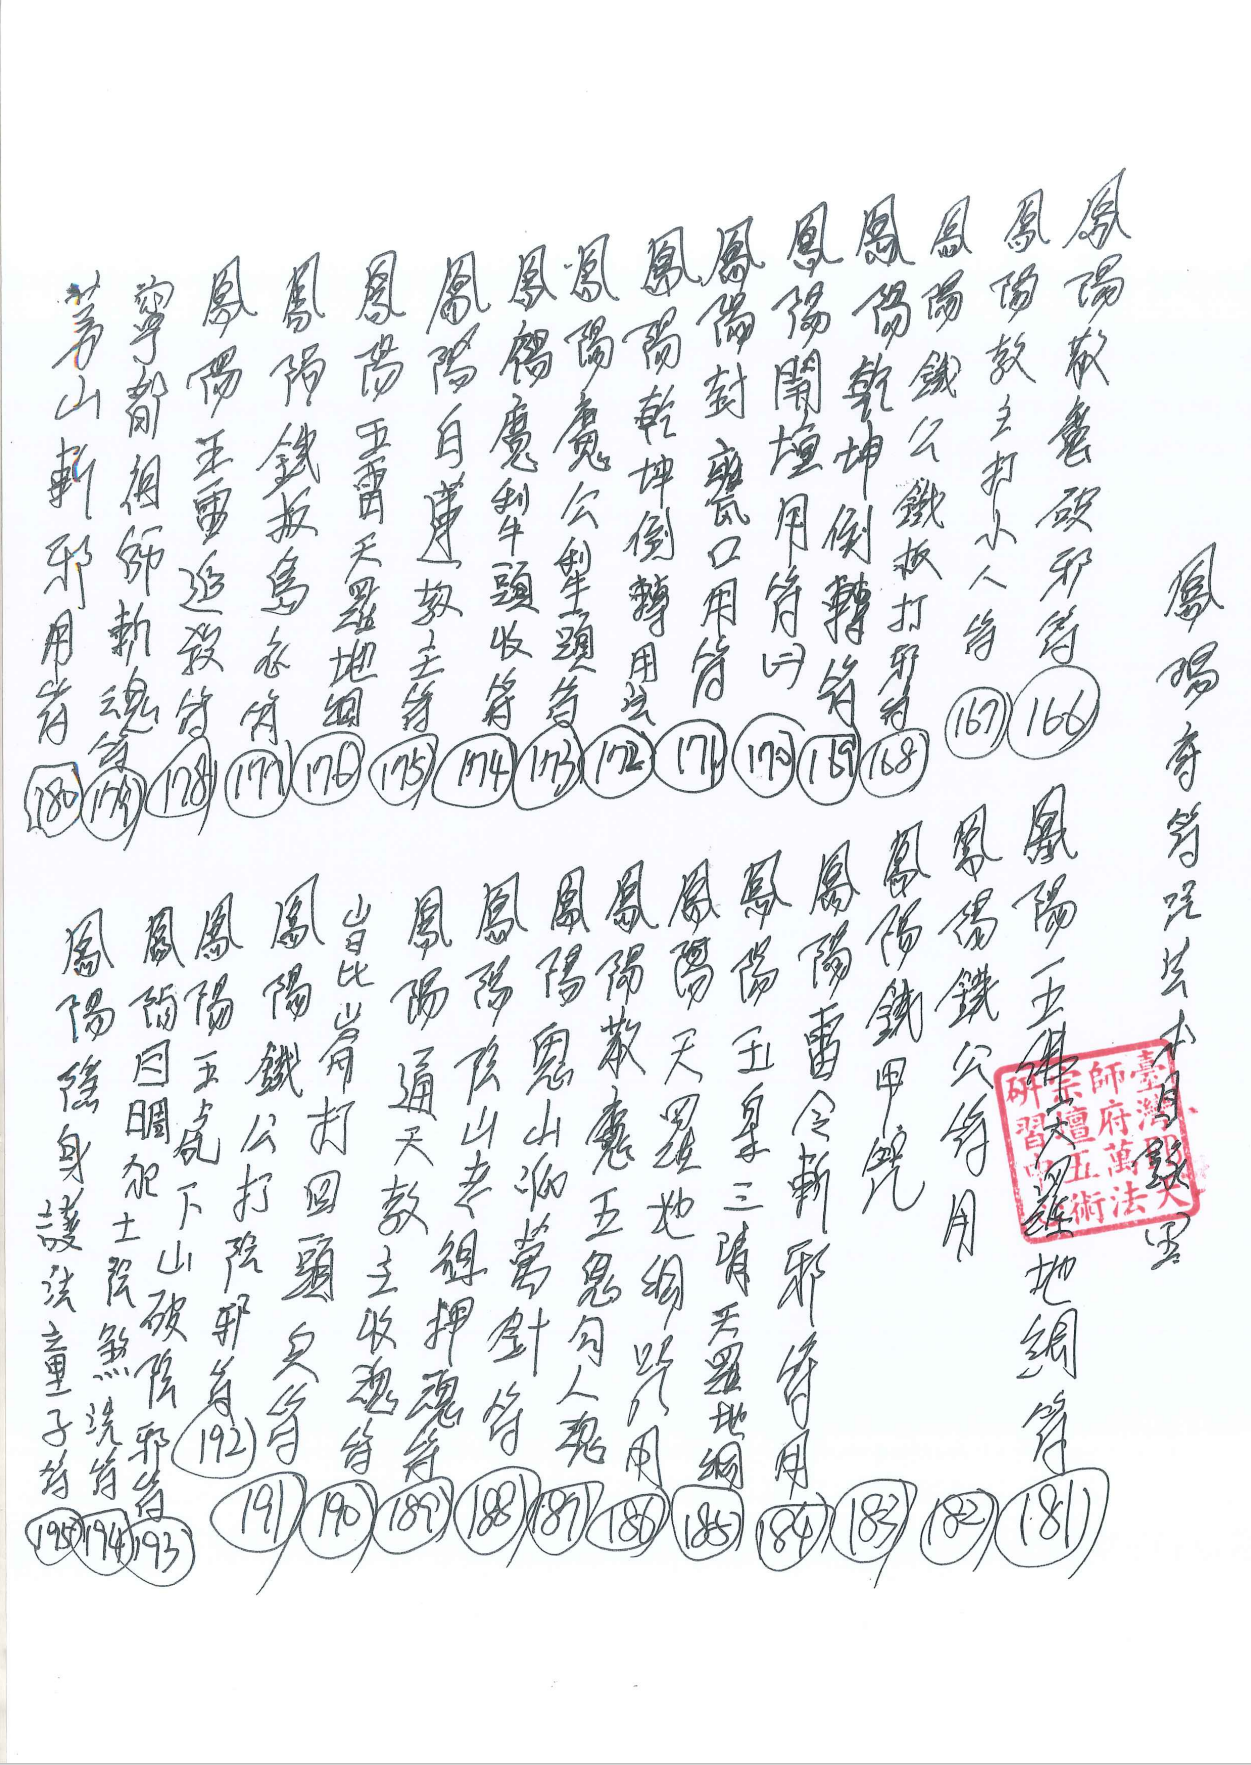 鳳陽奇符咒法本目錄
鳳陽散魔破邪符 166
鳳陽教主打小人符 167
鳳陽鐵公鐵板打邪符 168
鳳陽乾坤倒轉符 169
鳳陽開壇用符 170
鳳陽封甕口用符 171
鳳陽乾坤倒轉用法 172
鳳陽魔公犁頭符 173
鳳陽魔犁頭收符 174
鳳陽白蓮教主符 175
鳳陽五雷天羅地網 176
鳳陽鐵板符 177
鳳陽五雷追殺符 178
祖師斬魂符 179
茅山斬邪用符 180
鳳陽五佛天羅地網符 181
鳳陽鐵公符用 182
鳳陽鐵甲咒 183
鳳陽雷令斬邪符用 184
鳳陽玉皇三清天羅地網 185
鳳陽天羅地網咒用 186
鳳陽散魔五鬼勾人魂 187
鳳陽鬼山派萬針符 188
鳳陽陰山老祖押魂符 189
鳳陽通天教主收魂符 190
崑崙打回頭符 191
鳳陽鐵公打陰邪符 192
鳳陽五虎下山破陰邪符 193
鳳陽犯土陰煞洗符 194
鳳陽隱身護法童子符 195
臺灣
師府萬法
宗壇五術
研習中